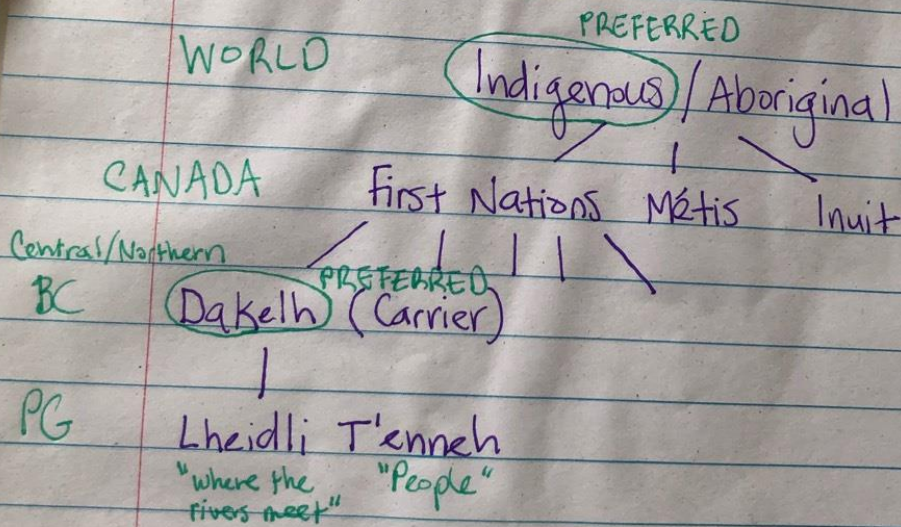 PREFERRED
WORLD
Indigenous / Aboriginal
CANADA
First Nations Métis Inuit
Central/Northern
PREFERRED
BC Dakelh (Carrier)
PG
Lheidli T'enneh
"where the "People"
rivers meet"